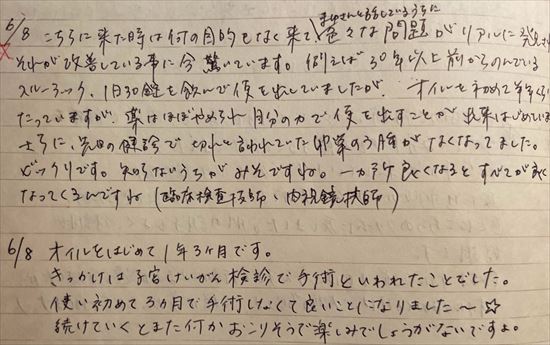 6/8 こちらに来た時は何の目的もなく来て、まゆさんと話しているうちに色々な問題がリアルに発
それが改善している事に今驚いています。例えば30年以上前からのんでいる
スルーラック、1日30錠を飲んで便を出していましたが、オイルを初めて半年くらい
たっていますが、薬はほぼやめられ自分の力で便を出すことが出来はじめていま
さらに、先日の健診で切れと言われていた卵巣のう腫がなくなってました。
ビックリです。知らないうちがみそですね。一カ所良くなるとすべてが良く
なってくるんですね(臨床検査技師・内視鏡技師)
6/8 オイルをはじめて1年3ヶ月です。
きっかけは子宮けいがん検診で手術といわれたことでした。
使い初めて3カ月で手術しなくて良いことになりました〜☆
続けていくとまた何かおこりそうで楽しみでしょうがないですよ。